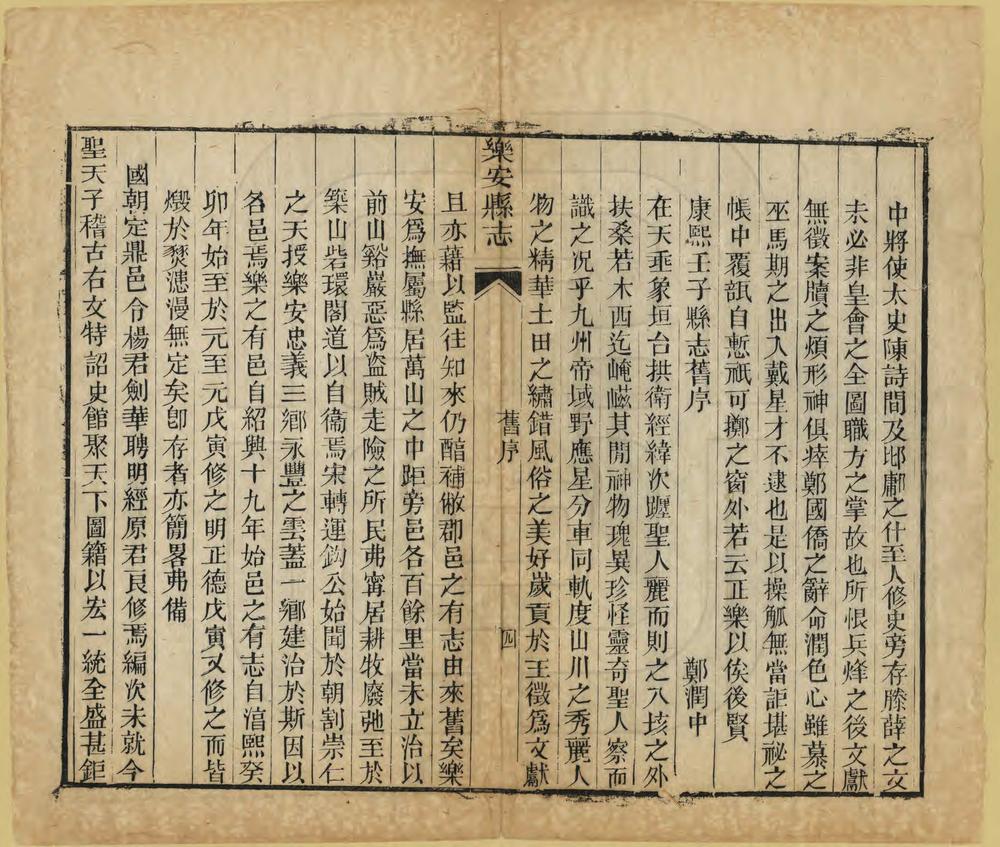 中將使太史陳詩間及邶鄘之什至人修史旁存滕薛之文
未必非皇會之全圖職方之掌故也所恨兵烽之後文獻
無徵案牘之煩形神俱瘁鄭國僑之辭命潤色心雖慕之
巫馬期之出入戴星才不逮也是以操觚無當詎堪祕之
帳中覆瓿自慙祇可擲之窗外若云正樂以俟後賢
康熙壬子縣志舊序 鄭潤中
在天垂象垣台拱衛經緯次躔聖人麗而則之八垓之外
扶桑若木西迄崦嵫其閒神物瑰異珍怪靈奇聖人察而
識之況乎九州帝域野應星分車同軌度山川之秀麗人
物之精華土田之繡錯風俗之美好歲貢於王徵爲文獻
樂安縣志 舊序 四
且亦藉以監往知來仍酷補敝郡邑之有志由來舊矣樂
安爲撫屬縣居萬山之中距旁邑各百餘里當未立治以
前山谿巖惡爲盜賊走險之所民弗寧居耕牧廢弛至於
築山砦環閣道以自衞焉宋轉運鈞公始聞於朝割崇仁
之天授樂安忠義三鄉永豐之雲蓋一鄉建治於斯因以
各邑焉樂之有邑自紹興十九年始邑之有志自淯熙癸
卯年始至於元至元戊寅修之明正德戊寅又修之而皆
燬於燹漶漫無定矣卽存者亦簡畧弗備
國朝定鼎邑令楊君劍華聘明經原君良修焉編次未就今
聖天子稽古右文特詔史館聚天下圖籍以宏一統全盛甚鉅